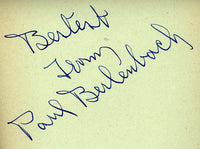 Bertest
from
Paul Berlenbach